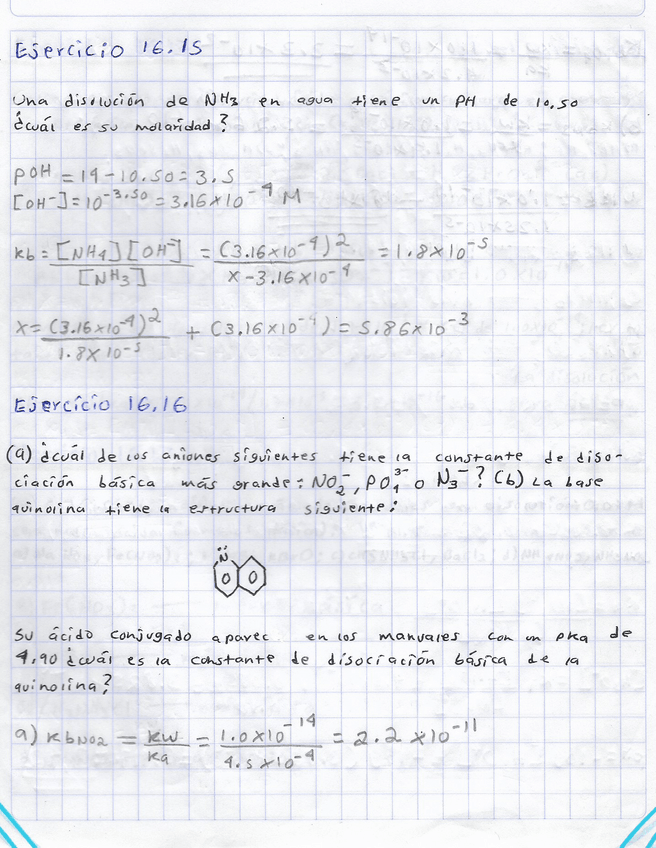 Ejercicio 16.15
Una disolución de NH3 en agua tiene un PH de 10,50
¿cuál es su molaridad?
POH = 14-10.50 = 3.5
[OH-] = 10^-3.50 = 3.16x10^-4 M
kb = [NH4][OH-] / [NH3] = (3.16x10^-4)^2 / x-3.16x10^-4 = 1.8x10^-5
x = (3.16x10^-4)^2 / 1.8x10^-5 + (3.16x10^-4) = 5.86x10^-3
Ejercicio 16.16
(a) ¿cuál de los aniones siguientes tiene la constante de diso-
ciación básica más grande: NO2^-, PO4^3- o N3^-? (b) La base
quinolina tiene la estructura siguiente:
N
Su ácido conjugado aparec en los manuales con un pka de
4,90 ¿cuál es la constante de disociación básica de la
quinolina?
a) kbNO2 = kw / ka = 1.0x10^-14 / 4.5x10^-4 = 2.2x10^-11